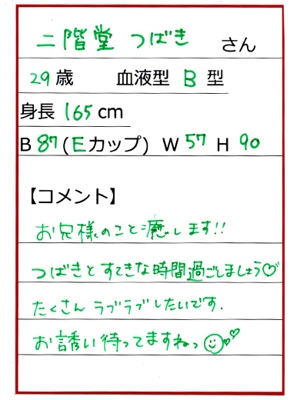 二階堂 つばき さん
29歳 血液型 B 型
身長 165 cm
B 87(Eカップ) W 57 H 90
【コメント】
お兄様のこと癒します!!
つばきとすてきな時間過ごしましょう♡
たくさんラブラブしたいです.
お誘い待ってますねっ☺♥♥